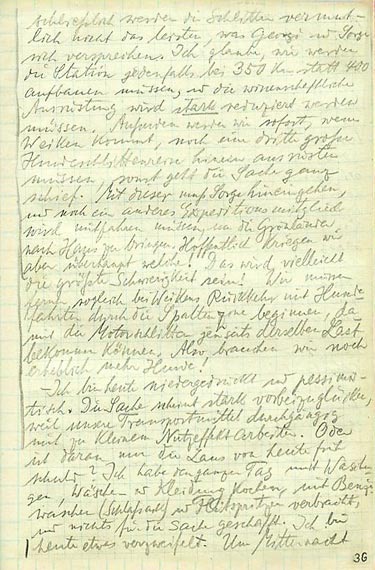 schliesslich werden die Schlitten vermut-
lich nicht das leisten, was Georgi u Sorge
sich versprechen. Ich glaube, wir werden
die Station jedenfalls bei 350 km statt 400
aufbauen müssen, u die wissenschaftliche
Ausrüstung wird stark reduziert werden
müssen. Außerdem werden wir sofort, wenn
Weiken kommt, noch eine dritte große
Hundeschlittenreise hinein ausrüsten
müssen, sonst geht die Sache ganz
schief. Mit dieser muß Sorge hineingehen,
und noch ein anderes Expeditionsmitglied
wird mitfahren müssen, um die Grönländer
nach Haus zu bringen. Hoffentlich kriegen wir
aber überhaupt welche! Das wird vielleicht
die größte Schwierigkeit sein! Wir müssen
ferner sogleich bei Weikens Rückkehr mit Hunde-
fahrten durch die Spaltenzone beginnen, da-
mit die Motorschlitten jenseits derselben Last
bekommen können. Also brauchen wir noch
erheblich mehr Hunde!
Ich bin heute niedergedrückt u pessimis-
tisch. Die Sache scheint stark vorbeizuglücken,
weil unsere Transportmittel durchgängig
mit zu kleinem Nutzeffekt arbeiten. Oder
ist daran nur die Laus von heute früh
schuld? Ich habe den ganzen Tag mit Wasch-
gen, Wäsche- u Kleidung kochen, mit Benzin-
waschen (Schlafsack) u Flitspritzen verbracht,
und nichts für die Sache geschafft. Ich bin
heute etwas verzweifelt. Um Mitternacht
36